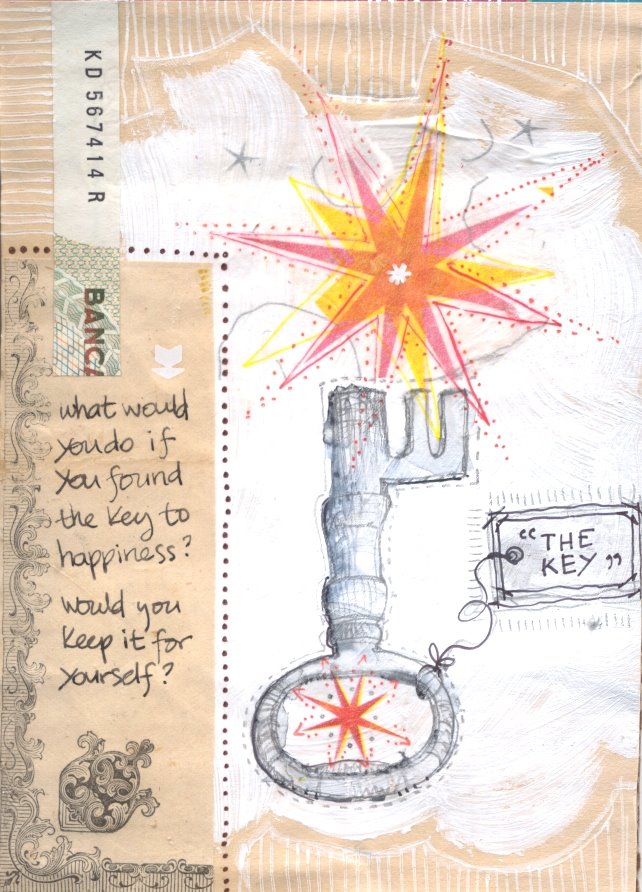 KD 567414 R
BANCA
what would
you do if
you found
the key to
happiness?
would you
keep it for
yourself?
"THE
KEY"